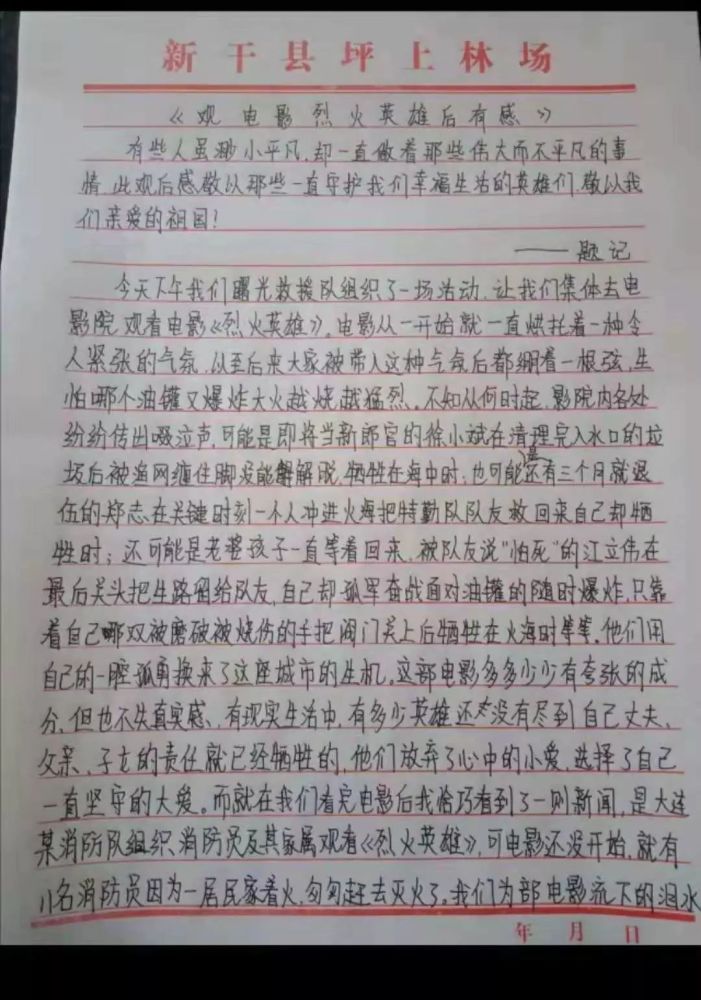 新干县坪上林场
《观电影烈火英雄后有感》
有些人虽渺小平凡，却一直做着那些伟大而不平凡的事
情，此观后感敬以那些一直守护我们幸福生活的英雄们，敬以我
们亲爱的祖国！
——题记
今天下午我们曙光救援队组织了一场活动，让我们集体去电
影院观看电影《烈火英雄》。电影从一开始就一直烘托着一种令
人紧张的气氛，以至后来大家被带入这种气氛后都绷着一根弦，生
怕哪个油罐又爆炸大火越烧越猛烈。不知从何时起，影院内各处
纷纷传出啜泣声，可能是即将当新郎官的徐小斌在清理完入水口的垃
圾后被渔网缠住脚没能解脱，牺牲在海中时，也可能是还有三个月就退
伍的郑志在关键时刻一个人冲进火海把特勤队队友救回来自己却牺
牲时；还可能是老婆孩子一直等着回来，被队友说"怕死"的江立伟在
最后关头把生路留给队友，自己却孤军奋战面对油罐的随时爆炸，只靠
着自己哪双被磨破被烧伤的手把阀门关上后牺牲在火海时等等。他们用
自己的一腔孤勇换来了这座城市的生机。这部电影多多少少有夸张的成
分，但也不失真实感，有现实生活中，有多少英雄还没有尽到自己丈夫、
父亲、子女的责任就已经牺牲的，他们放弃了心中的小爱，选择了自己
一直坚守的大爱。而就在我们看完电影后我恰巧看到了一则新闻，是大连
某消防队组织消防员及其家属观看《烈火英雄》，可电影还没开始，就有
11名消防员因为一居民家着火，匆匆赶去灭火了。我们为部电影流下的泪水
年 月 日